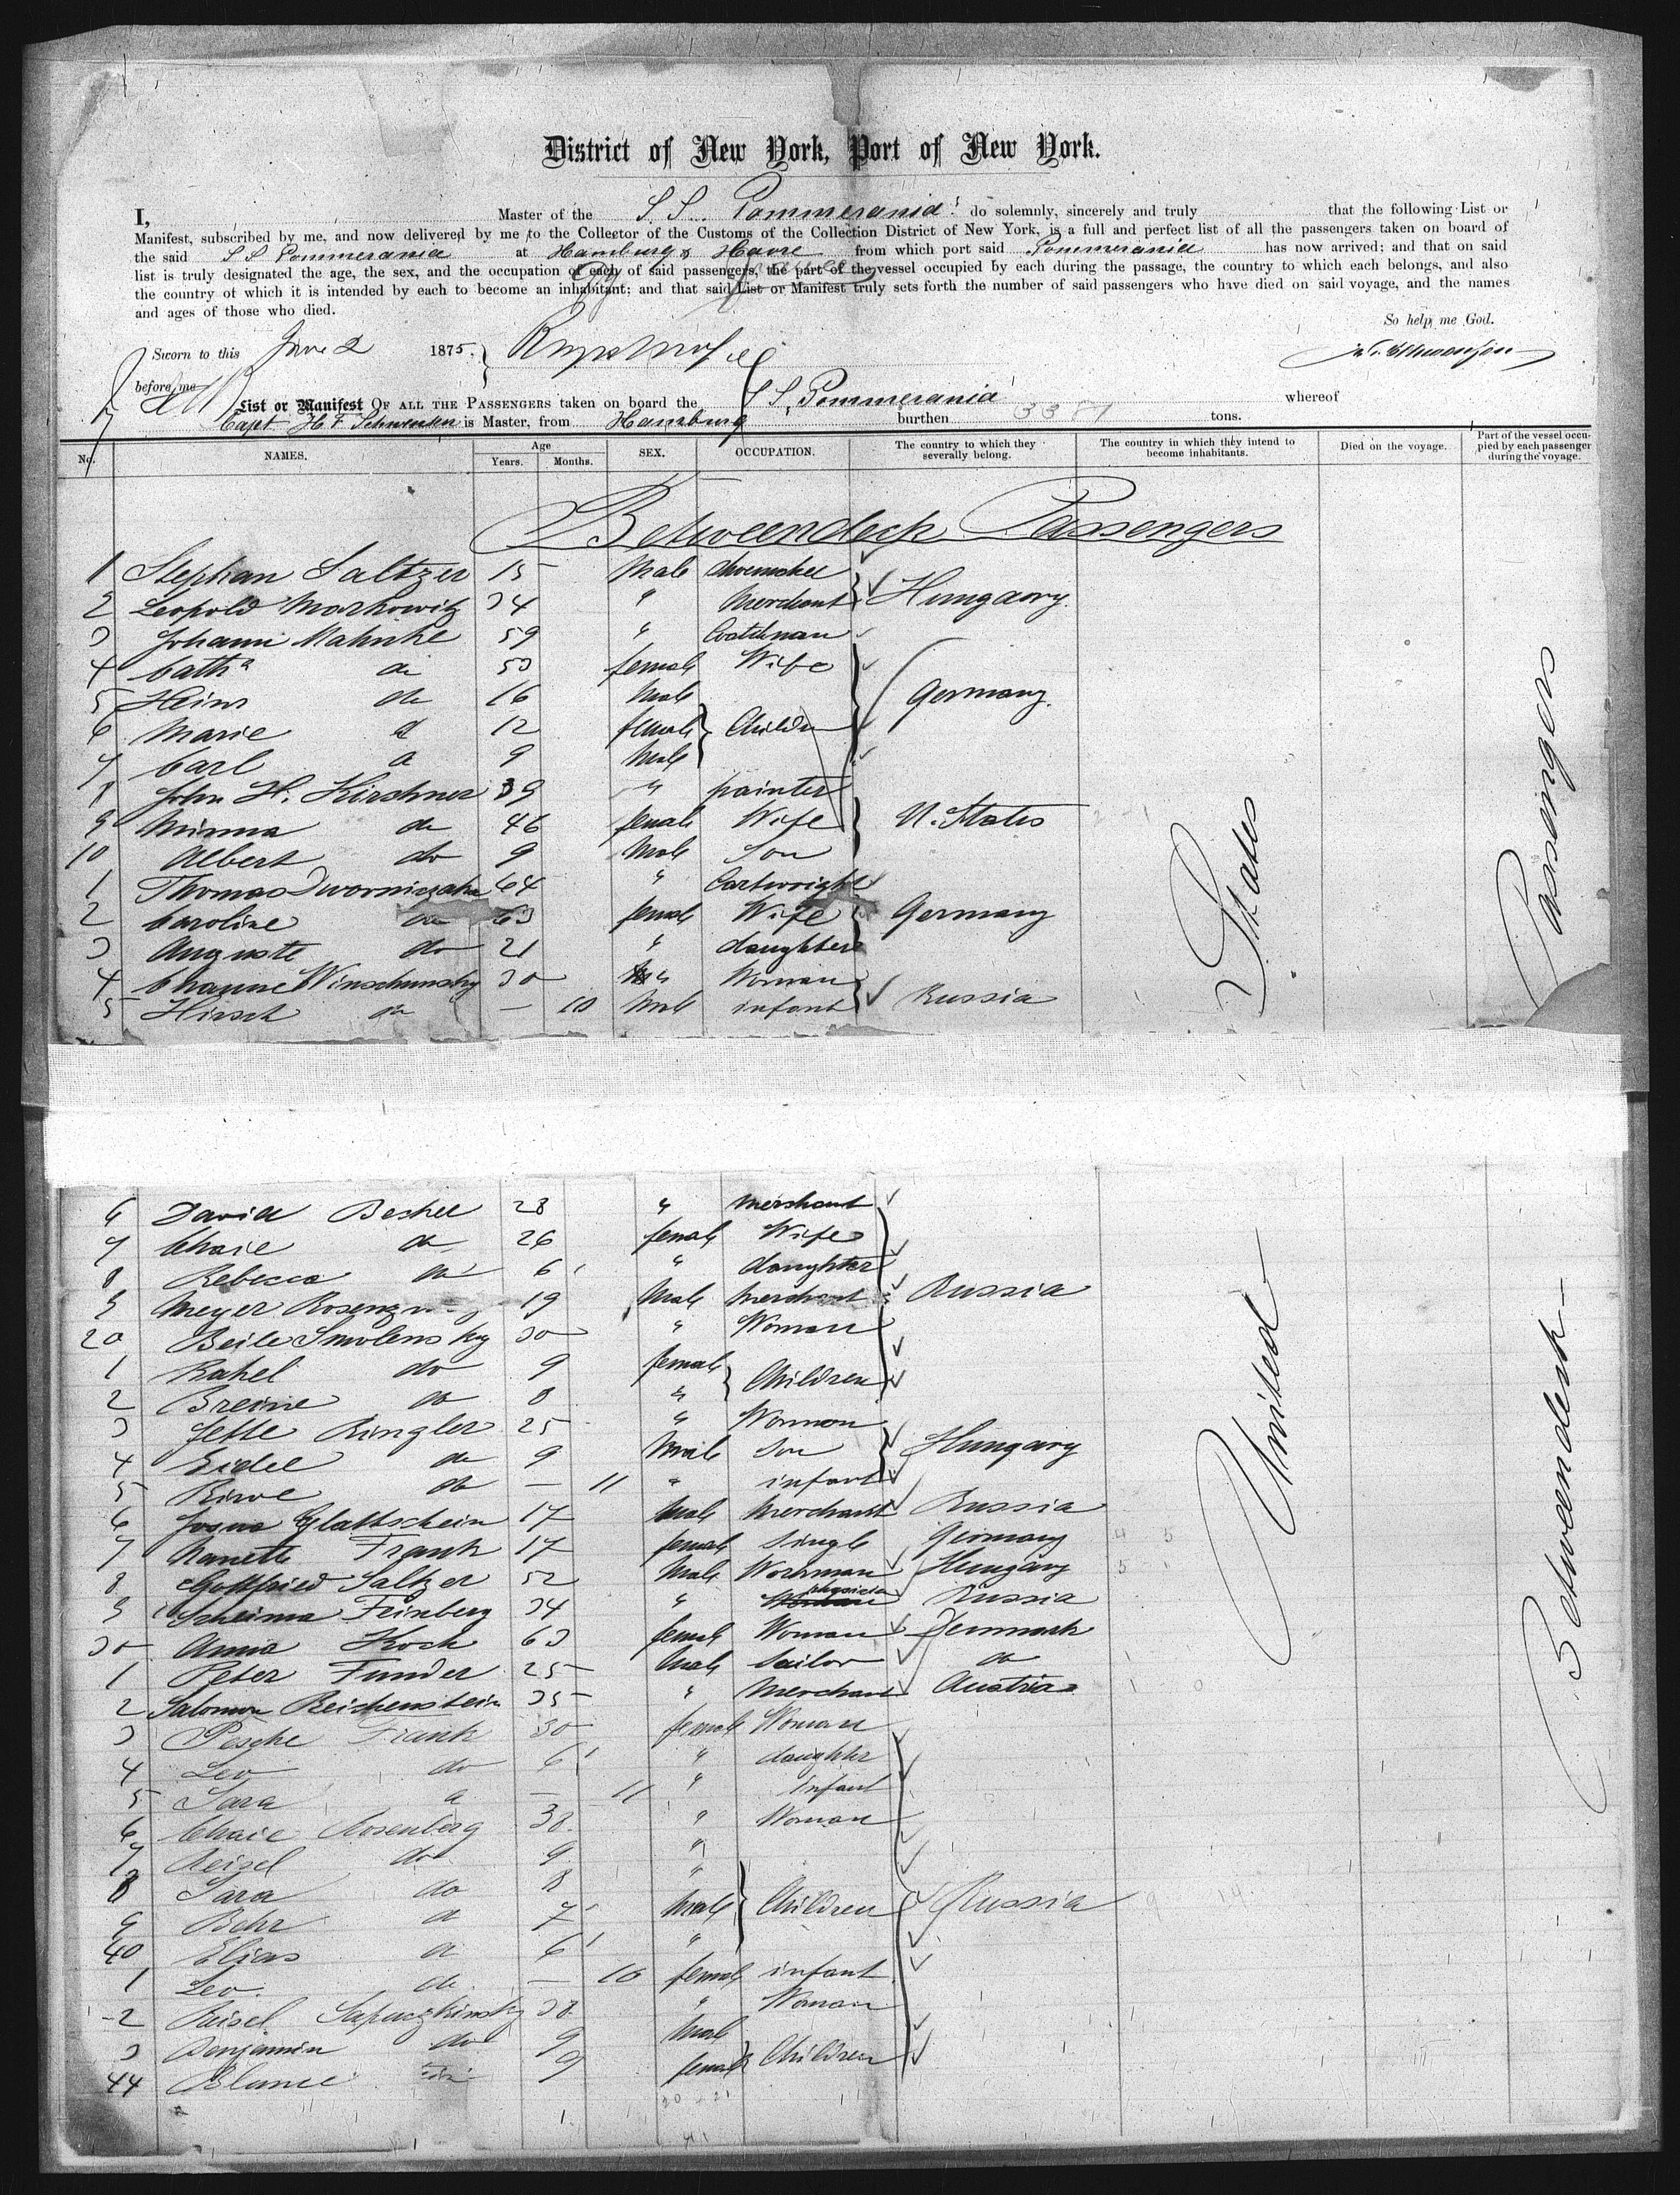 District of New York, Port of New York.
I, Master of the S. S. Pommerania do solemnly, sincerely and truly that the following List or
Manifest, subscribed by me, and now delivered by me to the Collector of the Customs of the Collection District of New York, is a full and perfect list of all the passengers taken on board of
the said S S Pommerania at Hamburg & Havre from which port said Pommerania has now arrived; and that on said
list is truly designated the age, the sex, and the occupation of each of said passengers, the part of the vessel occupied by each during the passage, the country to which each belongs, and also
the country of which it is intended by each to become an inhabitant; and that said List or Manifest truly sets forth the number of said passengers who have died on said voyage, and the names
and ages of those who died.
So help me God.
Sworn to this June 2 1875.
before me
List or Manifest OF ALL THE PASSENGERS taken on board the S S Pommerania whereof
Capt H F Schwensen is Master, from Hamburg burthen tons.
No. NAMES. Age Years. Months. SEX. OCCUPATION. The country to which they severally belong. The country in which they intend to become inhabitants. Died on the voyage. Part of the vessel occupied by each passenger during the voyage.
Betweendeck Passengers
1 Stephan Saltzer 15 Male
2 Leopold Markowitz 34 " Merchant Hungary
3 Johann Mahnke 59 " Coachman
4 Cath a do 53 female Wife
5 Heinr do 16 Male Germany
6 Marie d 12 female Children
7 Carl do 9 Male
8 John H. Kirschner 39 " painter
9 Minna do 46 female Wife U. States
10 Albert do 9 Male Son
1 Thomas 64 " Cartwright
2 Caroline do 63 female Wife Germany
3 Auguste do 21 " daughter
4 Channe Winschunsky 30 " Woman
5 Hirsch do — 10 Male infant Russia
6 David Beshel 28 " Merchant
7 Chaie do 26 female Wife
8 Rebecca do 6 " daughter
9 Meyer 19 Male Merchant Russia
20 Beile Smolensky 30 " Woman
1 Rahel do 9 female Children
2 Breine do 8 "
3 Jette Ringler 25 " Woman
4 Eidel do 9 Male Son Hungary
5 Riwe do — 11 " infant
6 Josua Glattschein 17 Male Merchant Russia
7 Nanette Frank 17 female Single Germany
8 Gottfried Saltzer 52 Male Workman Hungary
9 Feinberg 34 " physician Russia
30 Anna Koch 63 female Woman Denmark
1 Peter Funder 25 Male Sailor do
2 Salomon Reichenstein 35 " Merchant Austria
3 Pesche Frank 30 female Woman
4 Lea do 6 " daughter
5 Sara d — 11 " infant
6 Chaie Rosenberg 38 " Woman
7 Reisel do 9 "
8 Sara do 8 "
9 Behr d 7 Male Children Russia
40 Elias d 6 "
1 Lea do — 10 female infant
2 Reisel 38 " Woman
3 Benjamin do 9 Male
44 Blume do 9 female Children
United States
Betweendeck Passengers